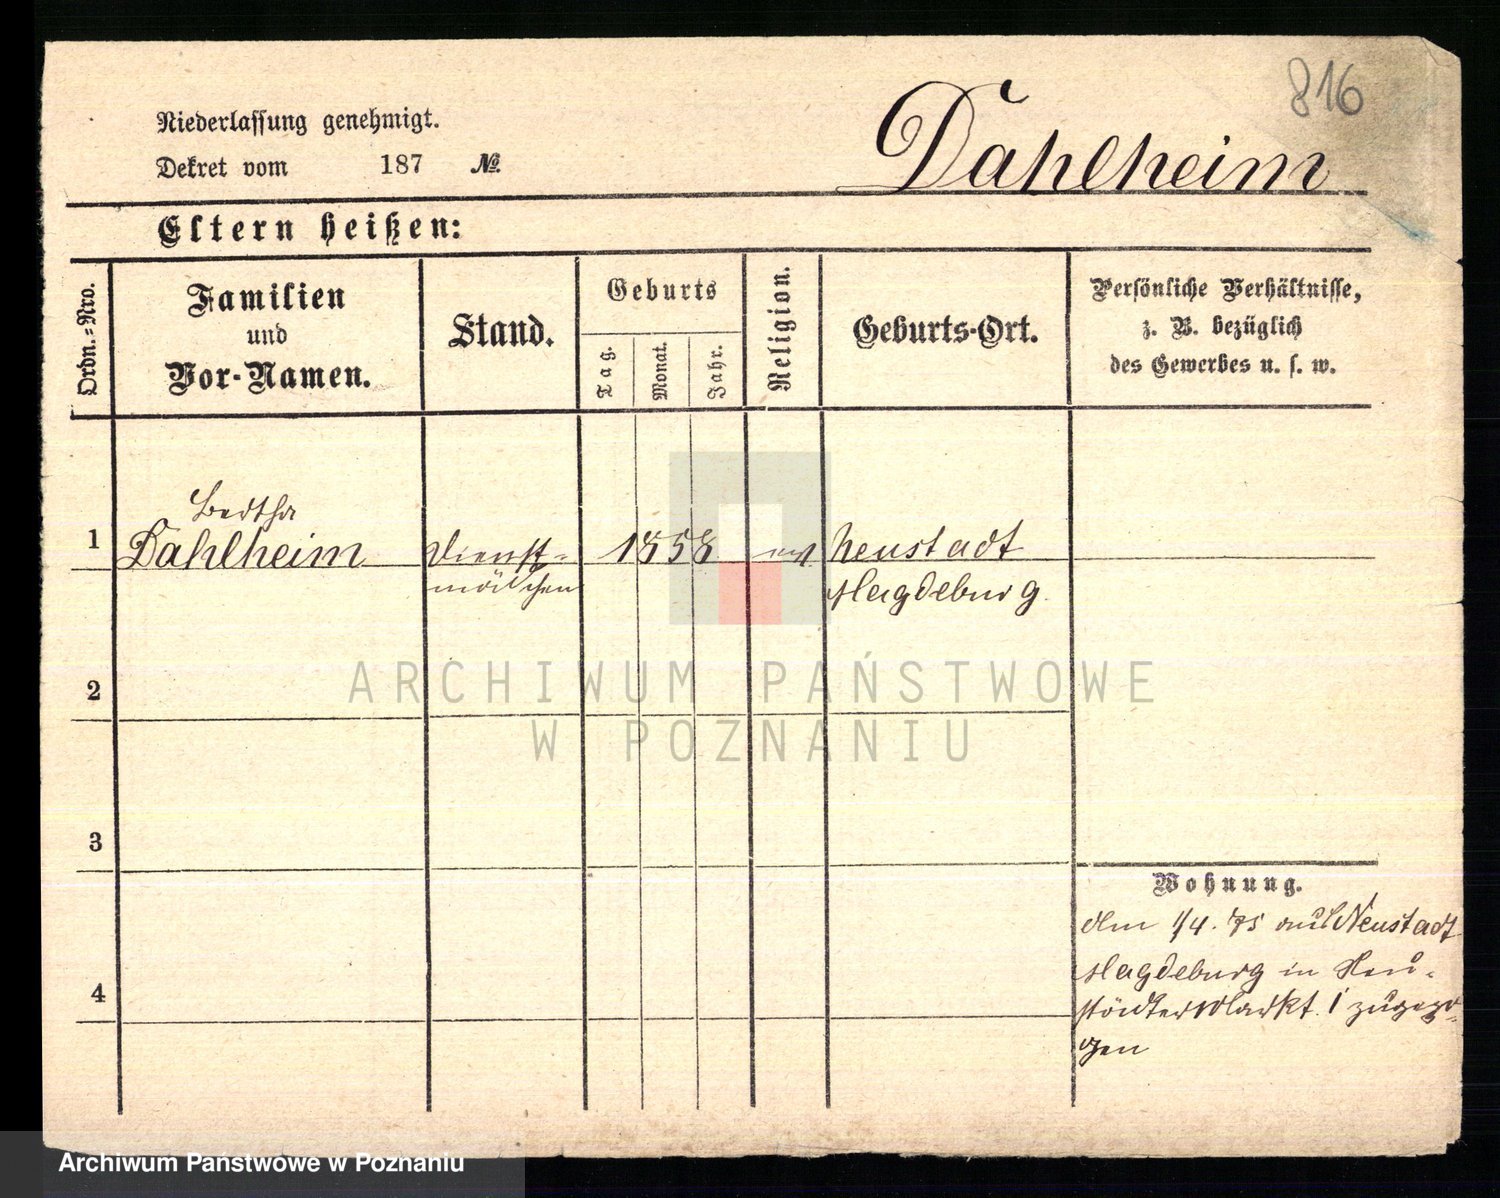 816
Niederlassung genehmigt.
Dekret vom 187 №
Dahlheim
Eltern heißen:
Ordn.-Nro.
Familien
und
Vor-Namen.
Stand.
Geburts
Tag.
Monat.
Jahr.
Religion.
Geburts-Ort.
Persönliche Verhältnisse,
z. B. bezüglich
des Gewerbes u. s. w.
Bertha
1 Dahlheim Dienst- 1858 ev Neustadt
mädchen Magdeburg.
ARCHIWUM PAŃSTWOWE
W POZNANIU
2
3
Wohnung.
Am 1/4. 75 aus Neustadt
Magdeburg in Neu-
städter Markt. 1 zugezo-
gen
4
Archiwum Państwowe w Poznaniu